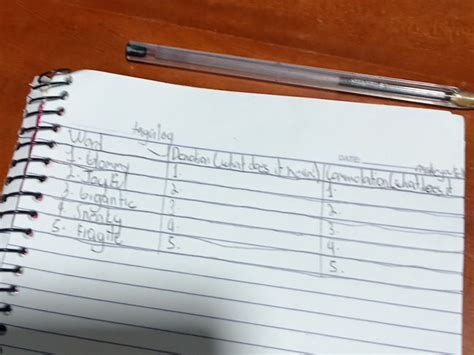 tagalog
DATE:
Word Donotion (what does it mean) Connotation (what does it
1. Glommy 1. 1.
2. Joyful 2. 2.
3. Gigantic 3. 3.
4. Snarky 4. 4.
5. Fragile 5. 5.